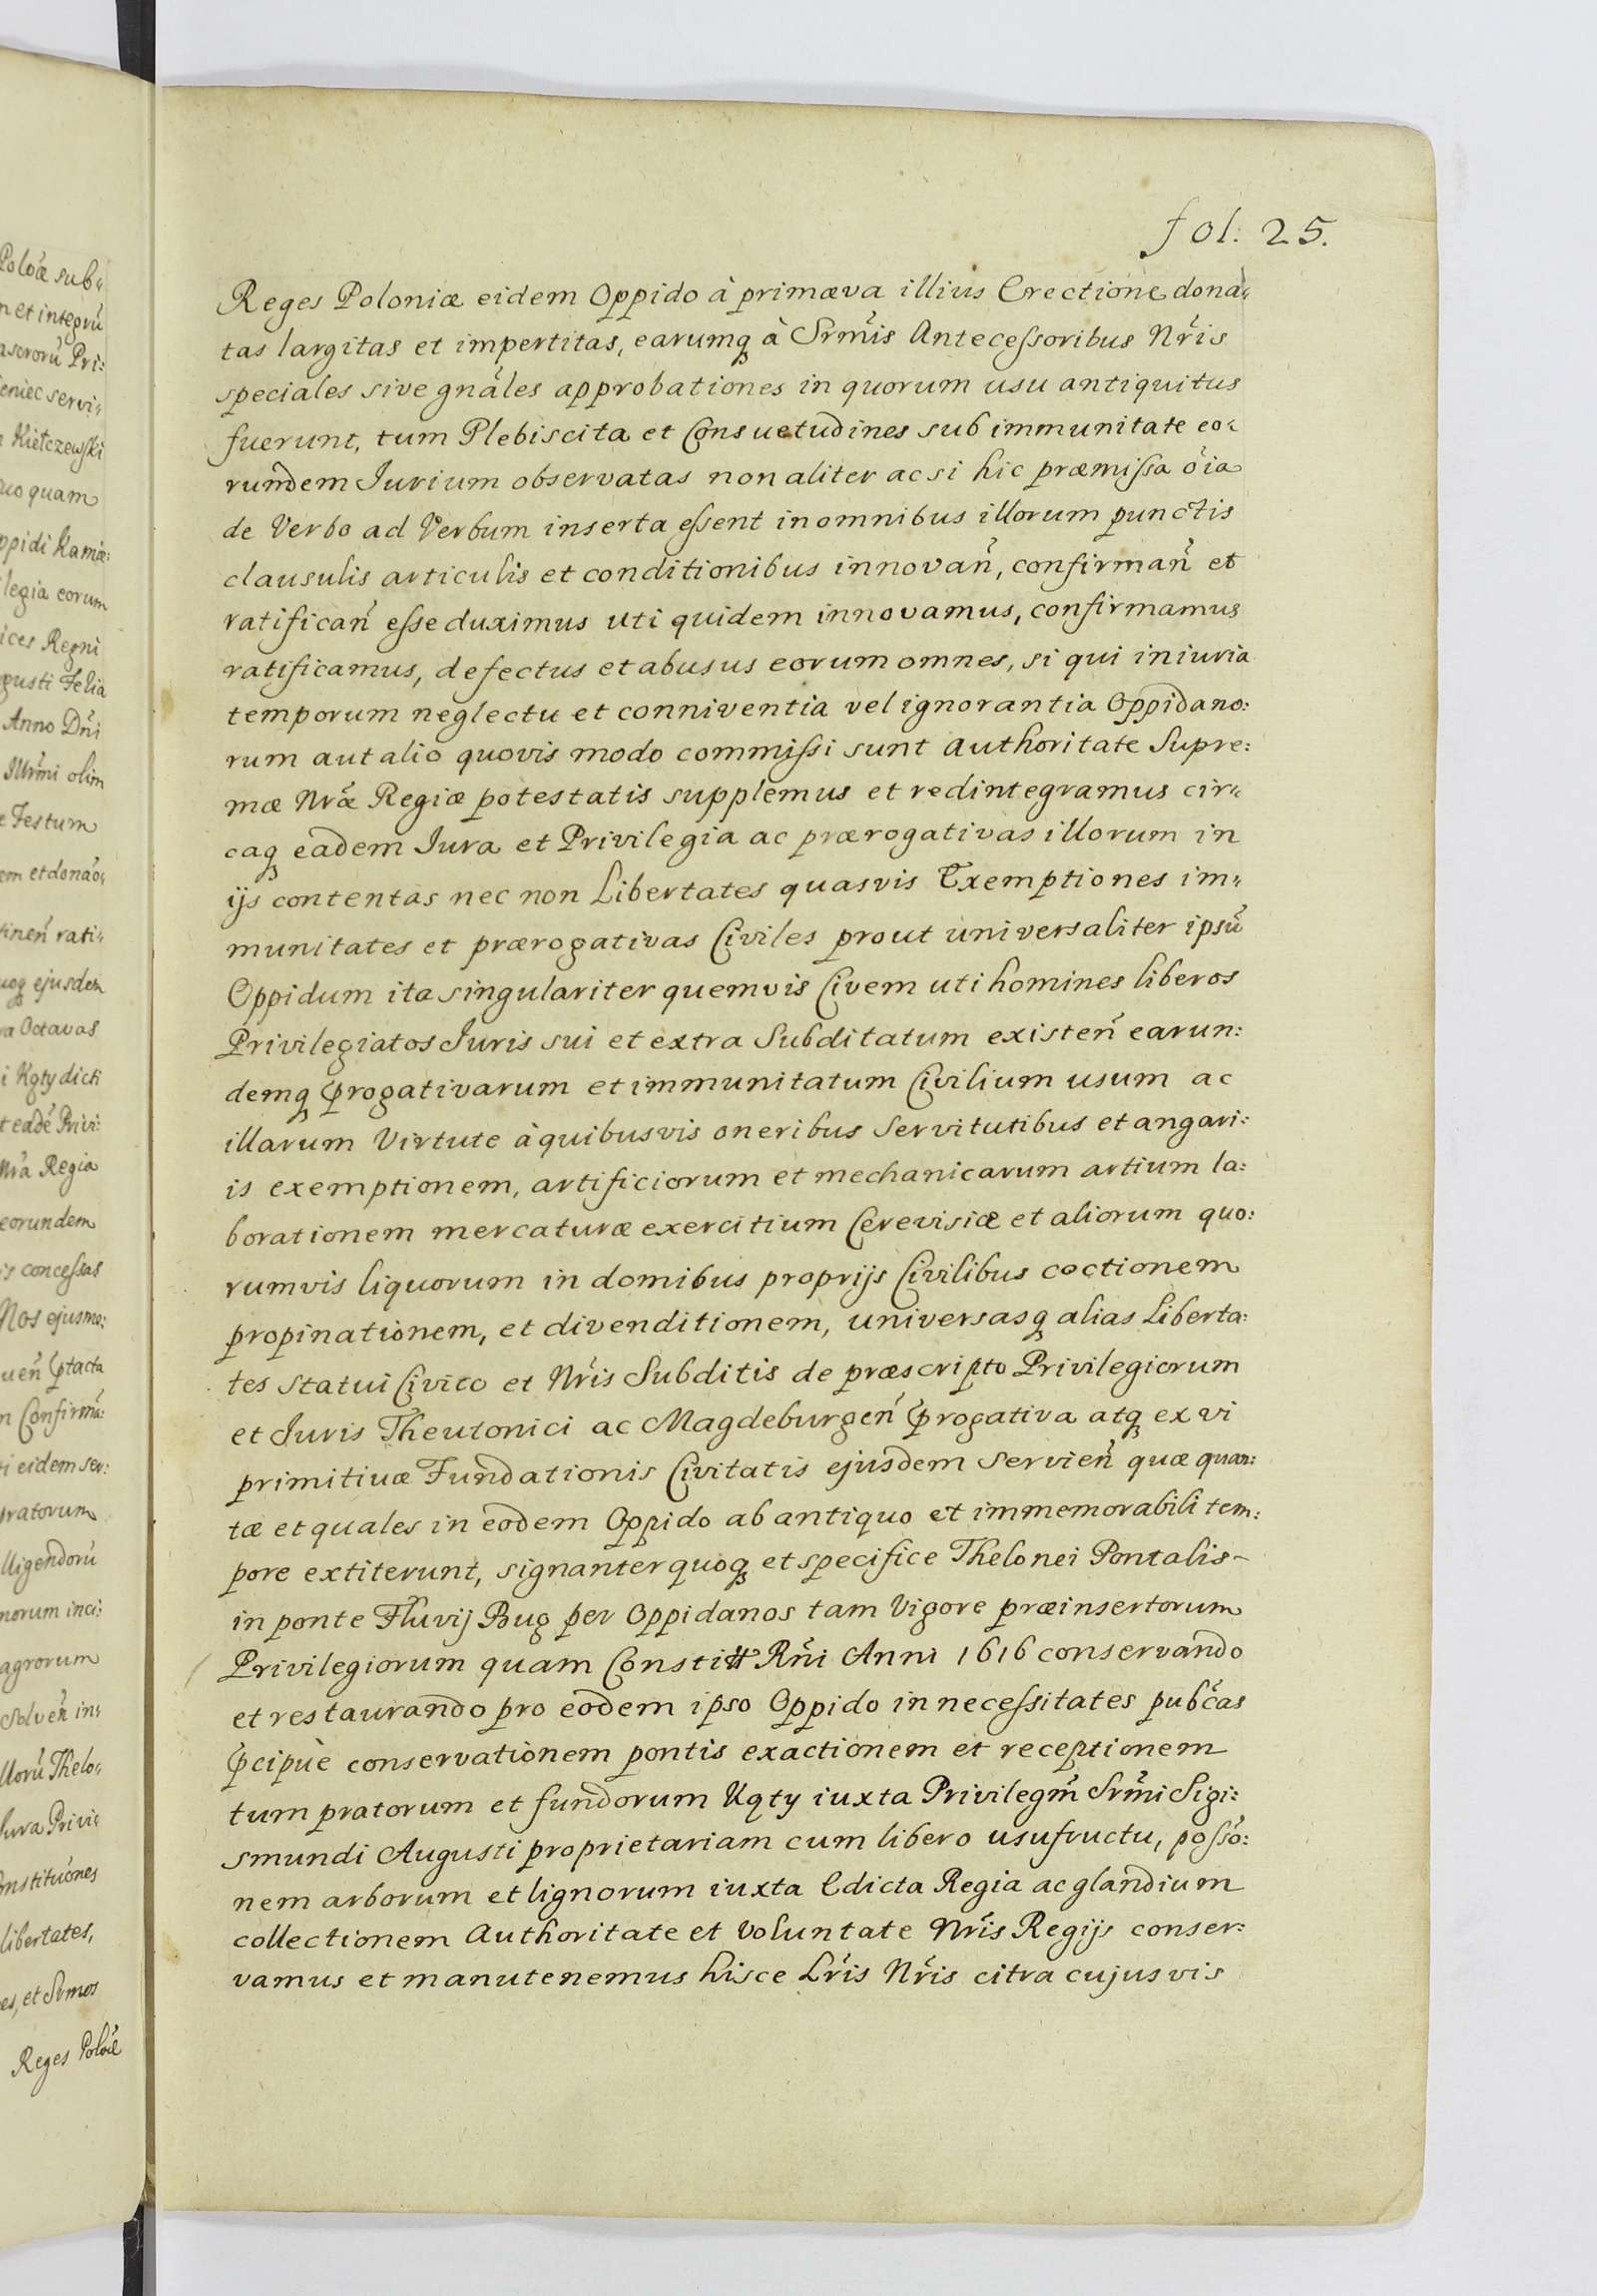 fol: 25.
Reges Poloniæ eidem Oppido à primæva illius Erectione dona„
tas largitas et impertitas, earumq̃ à Srmis Antecessoribus Nris
speciales sive gnales approbationes in quorum usu antiquitus
fuerunt, tum Plebiscita et Consuetudines sub immunitate eo„
rundem Jurium observatas non aliter ac si hic præmissa oia
de Verbo ad Verbum inserta essent in omnibus illorum punctis
clausulis articulis et conditionibus innovan̄, confirman̄ et
ratifican̄ esse duximus uti quidem innovamus, confirmamus
ratificamus, defectus et abusus eorum omnes, si qui iniuria
temporum neglectu et conniventia vel ignorantia Oppidano:
rum aut alio quovis modo commissi sunt Authoritate Supre:
mæ Nræ Regiæ potestatis supplemus et redintegramus cir„
caq̃ eadem Jura et Privilegia ac prærogativas illorum in
ijs contentas nec non Libertates quasvis Exemptiones im„
munitates et prærogativas Civiles prout universaliter ipsū
Oppidum ita singulariter quemvis Civem uti homines liberos
Privilegiatos Juris sui et extra Subditatum existen̄ earun:
demq̃ p̃rogativarum et immunitatum Civilium usum ac
illarum Virtute à quibusvis oneribus Servitutibus et angari:
is exemptionem, artificiorum et mechanicarum artium la:
borationem mercaturæ exercitium Cerevisiæ et aliorum quo:
rumvis liquorum in domibus proprijs Civilibus coctionem
propinationem, et divenditionem, universasq̃ alias Liberta:
tes statui Civico et Nris Subditis de præscripto Privilegiorum
et Juris Theutonici ac Magdeburgen̄ p̃rogativa atq̃ ex vi
primitivæ Fundationis Civitatis ejusdem Servien̄ quæ quan:
tæ et quales in eodem Oppido ab antiquo et immemorabili tem:
pore extiterunt, signanter quoq̃ et specifice Thelonei Pontalis-
in ponte Fluvij Bug per Oppidanos tam Vigore præinsertorum
Privilegiorum quam Constitt Rn̄i Anni 1616 conservando
et restaurando pro eodem ipso Oppido in necessitates pubcas
p̃cipuè conservationem pontis exactionem et receptionem
tum pratorum et fundorum Kąty iuxta Privilegm̄ Srmi Sigi:
smundi Augusti proprietariam cum libero usufructu, posso:
nem arborum et lignorum iuxta Edicta Regia ac glandium
collectionem Authoritate et Voluntate Nris Regijs conser:
vamus et manutenemus hisce Lris Nris citra cujusvis
Poloæ sub„
n et integrū
Pri:
servi„
Kiełczewski
uo quam
ppidi Kamie:
legia eorum
ices Regni
gusti Felia
Anno Dni
Illrmi olim
e Festum
em et donao„
tinen̄ rati„
uoq̃ ejusdem
ra Octavas
i Kąty dicti
t eadē Privi:
Nra Regia
eorundem
is concessas
Nos ejusmo:
uen̄ p̃tacta
n Confirma:
ti eidem ser:
pratorum
lligendorū
norum inci:
agrorum
Solven̄ in„
llorū Thelo„
Jura Privi:
onstituones
libertates,
es, et Srmos
Reges Poloæ